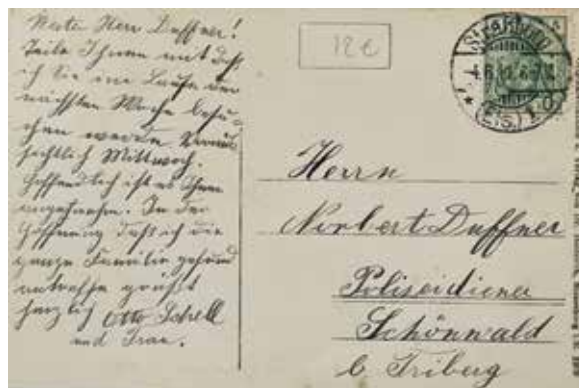 Werter Herr Duffner!
Teile Ihnen mit daß
ich Sie im Laufe der
nächsten Woche besu-
chen werde. Voraus-
sichtlich Mittwoch.
Hoffendlich ist es Ihnen
angenehm. In der
Hoffnung daß ich die
ganze Familie gesund
antreffe grüßt
herzlich Otto Schell
und Frau.
12 €
Strassburg
4.6.
(Els.) 1
Herrn
Norbert Duffner
Polizeidiener
Schönwald
b. Triberg